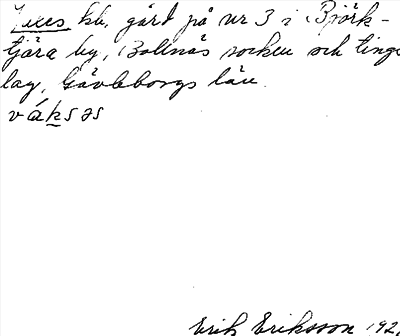 kb. gård på nr 3 i Björk-
tjära by, Bollnäs socken och tings
lag, Gävleborgs län.
váksəs
Erik Eriksson 192